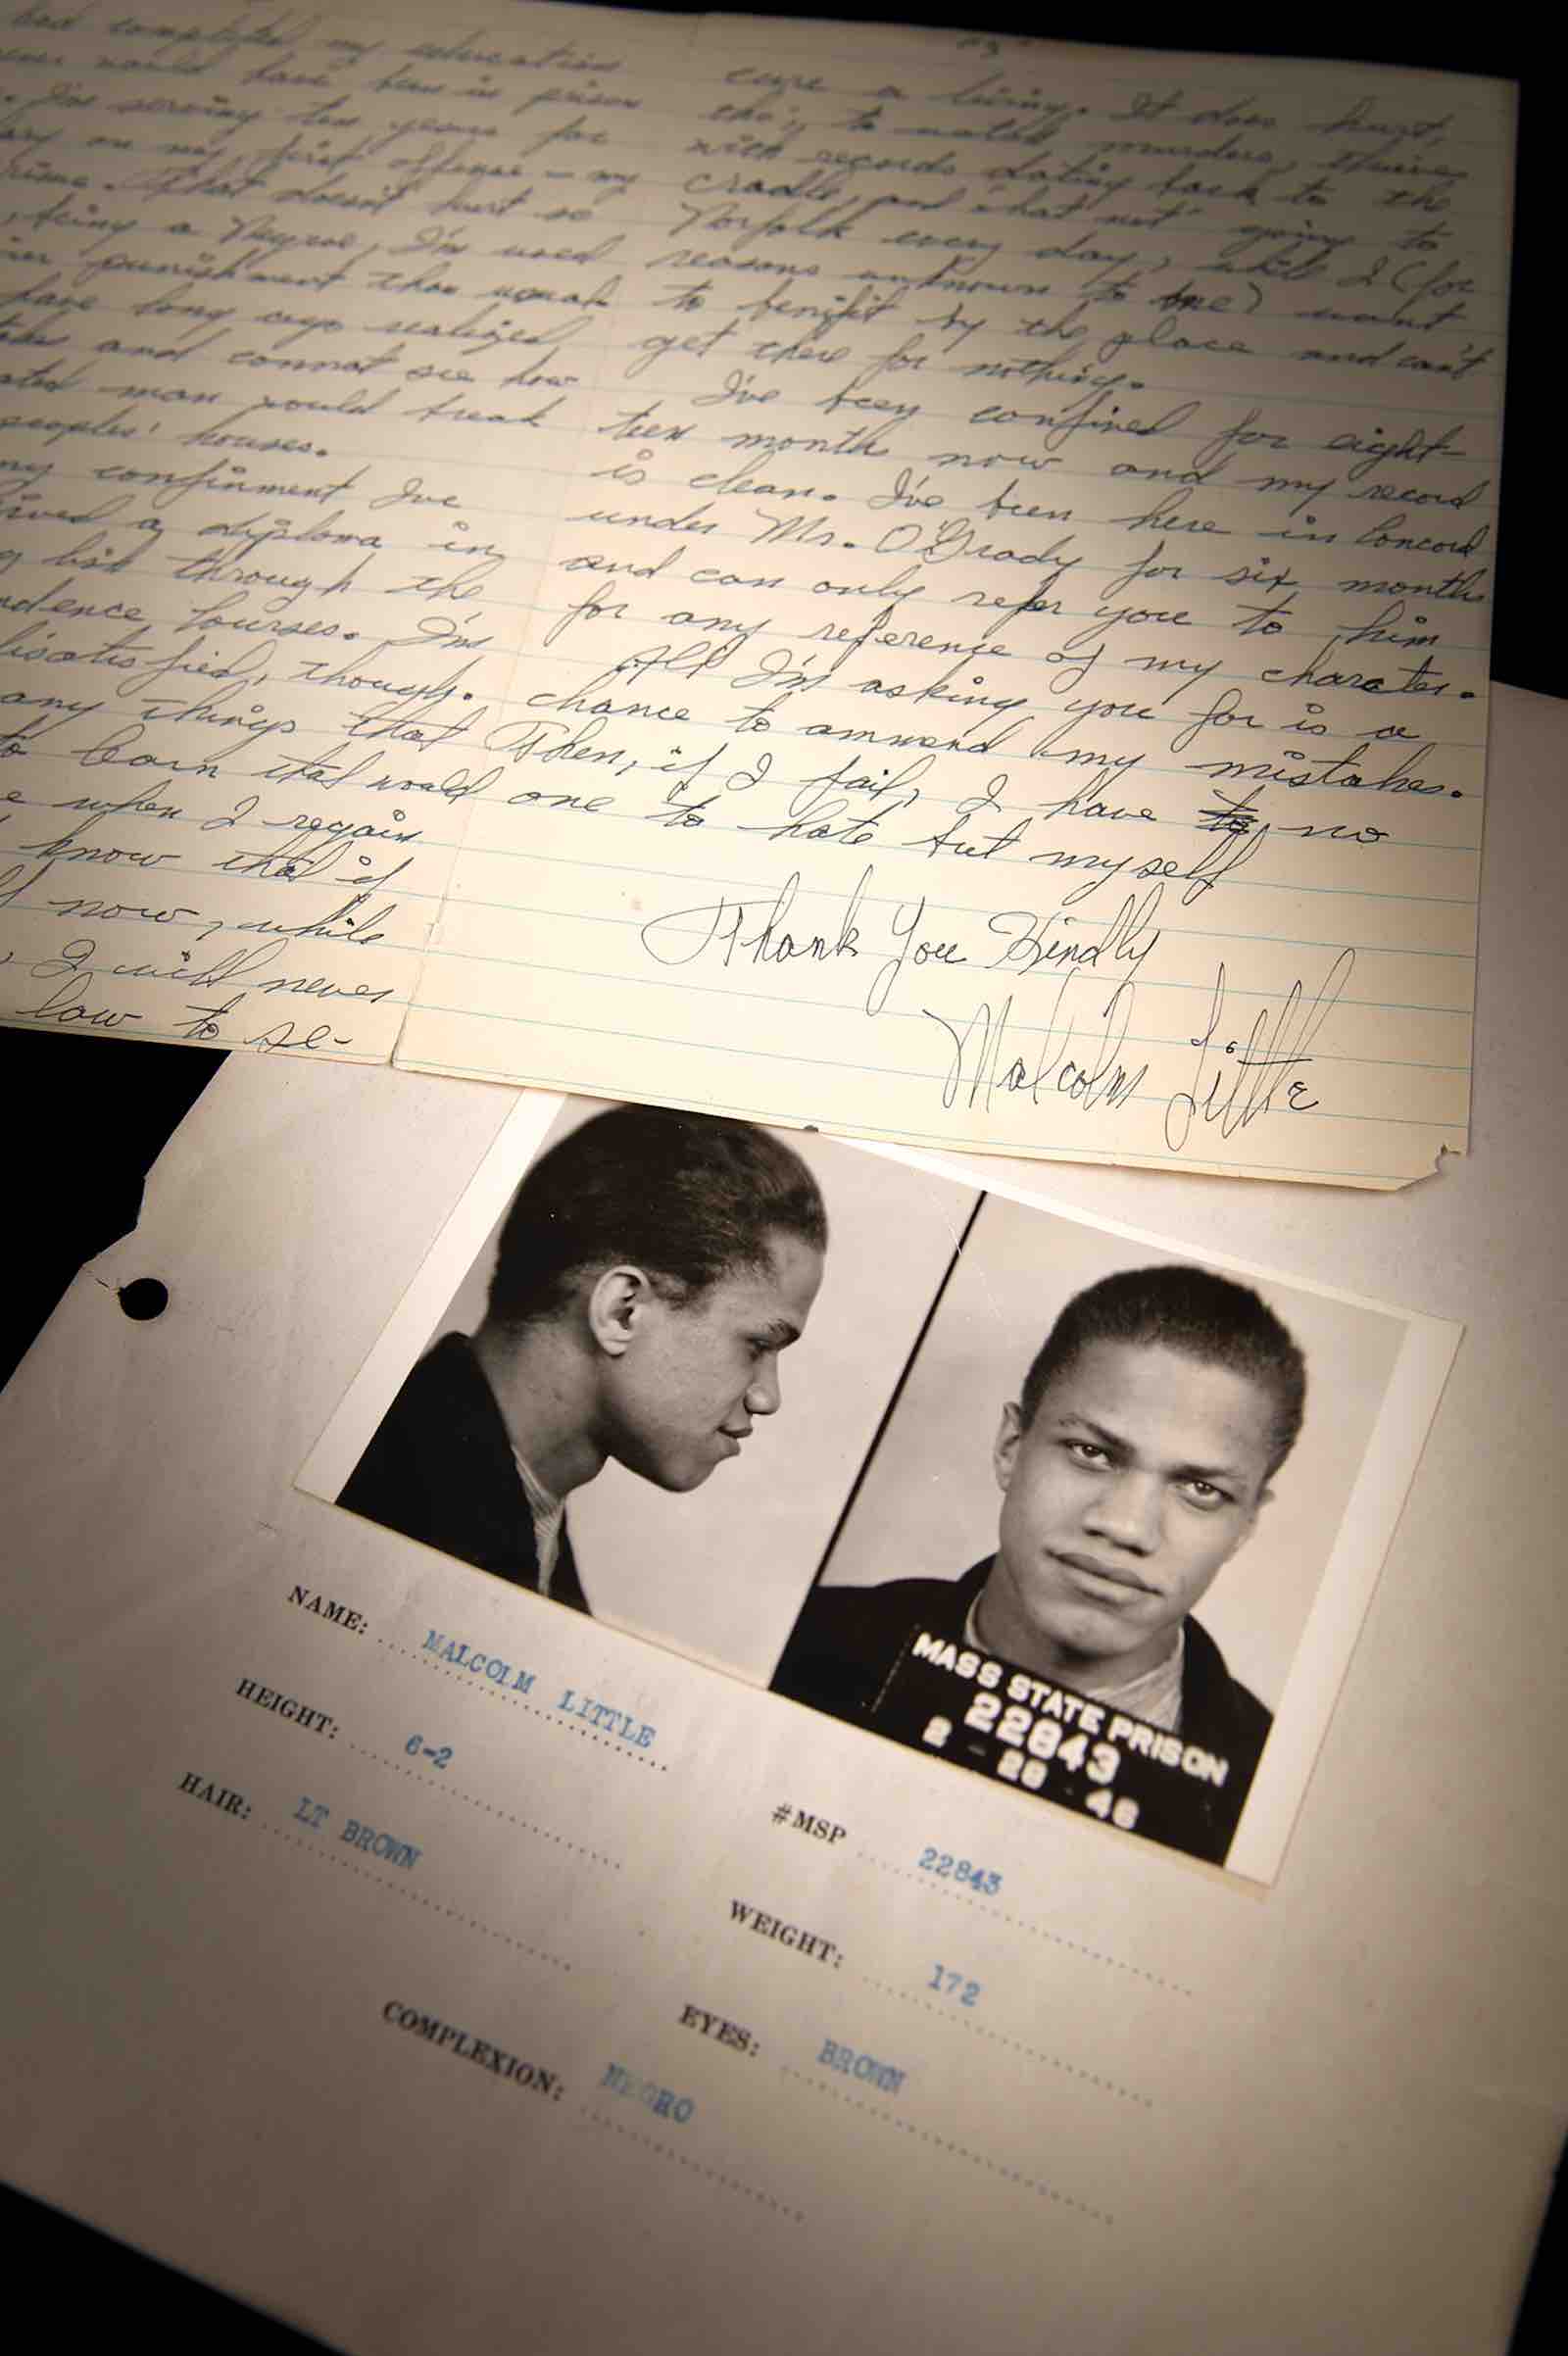 had completed my education
would have been in prison
I'm serving ten years for
on my first offense — my
. That doesn't hurt so
being a Negroe, I'm used
punishment than usual
have long ago realized
and connot see how
man would break
peoples' houses.
my confinment Ive
a diploma in
lish through the
dence Courses. I'm
disatisfied, though.
any things that
to learn that would
when I regain
know that if
now, while
, I will never
law to se-
cure a living. It does hurt,
tho', to watch murders, thieves
with records dating back to the
cradle, and what not going to
Norfolk every day, while I (for
reasons unknown to me) want
to benifit by the place and can't
get there for nothing.
I've been confined for eight-
teen month now and my record
is clean. I've been here in Concord
under Mr. O'Grady for six months
and can only refer you to him
for any reference of my charater.
All I'm asking you for is a
chance to ammend my mistakes.
Then, if I fail, I have to no
one to hate but myself
Thank You Kindly
Malcolm Little
MASS STATE PRISON
22843
2 - 28 - 46
NAME: MALCOLM LITTLE
#MSP 22843
HEIGHT: 6-2
WEIGHT: 172
HAIR: LT BROWN
EYES: BROWN
COMPLEXION: NEGRO